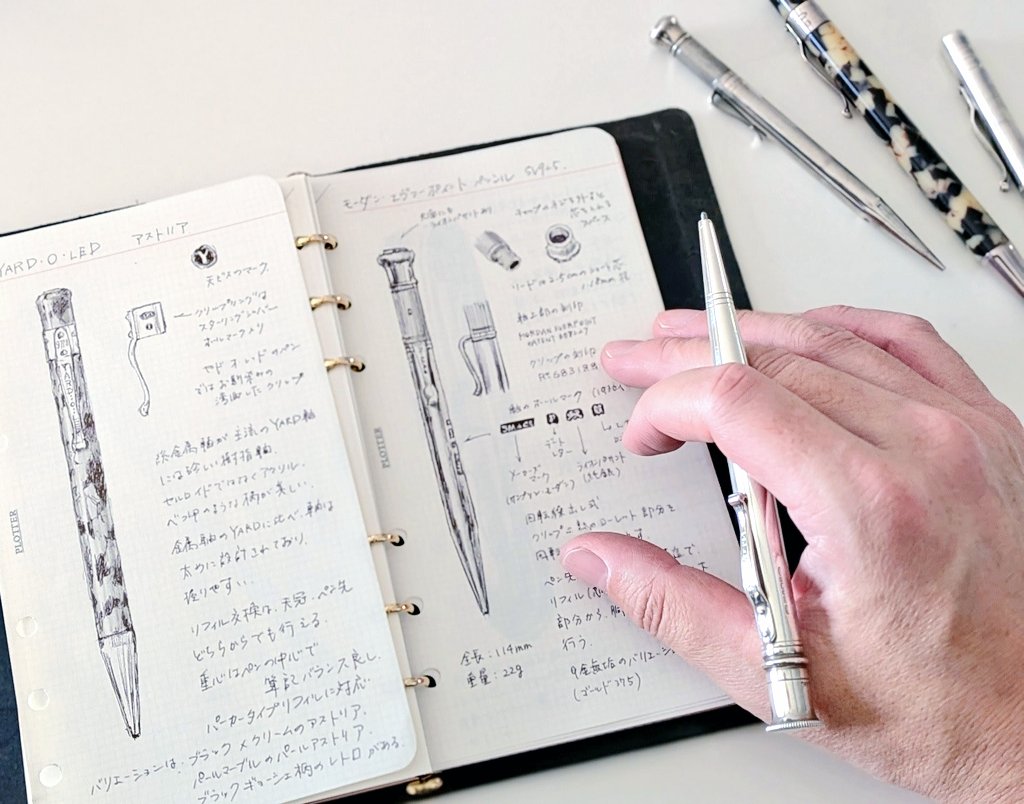 YARD・O・LED アストリア
天ビスのマーク
クリップリングは
スターリングシルバー
ホールマーク入り
ヤード・オ・レッドのペン
ではお馴染みの
湾曲したクリップ
金属軸が主流のYARD軸
には珍しい樹脂軸。
セルロイドではなくアクリル。
べっ甲のような柄が美しい。
金属軸のYARDに比べ、軸は
太めに設計されており、
握りやすい。
リフィル交換は、天冠、ペン先
どちらからでも行える。
重心はペンの中心で
筆記バランス良し。
パーカータイプリフィルに対応
バリエーションは、ブラック×クリームのアストリア。
パールマーブルのパールアストリア。
ブラックギョーシェ柄のレトロがある。
PLOTTER
モーダン・エヴァーポイント ペンシル
キャップのネジを外すと
芯を入れる
スペース
1.18mm芯
MORDAN EVERPOINT
PATENT
クリップの刻印
軸のホールマーク
SM&Co
P
デート
レター
メーカーズ
マーク
(サンプソン・モーダン)
ライオンパサント
(純銀)
回転繰出し式
部分を
回転
ペン先
リフィル
部分から、
行う。
全長：114mm
重量：22g
9金無垢のバリエーション
(ゴールド375)
PLOTTER